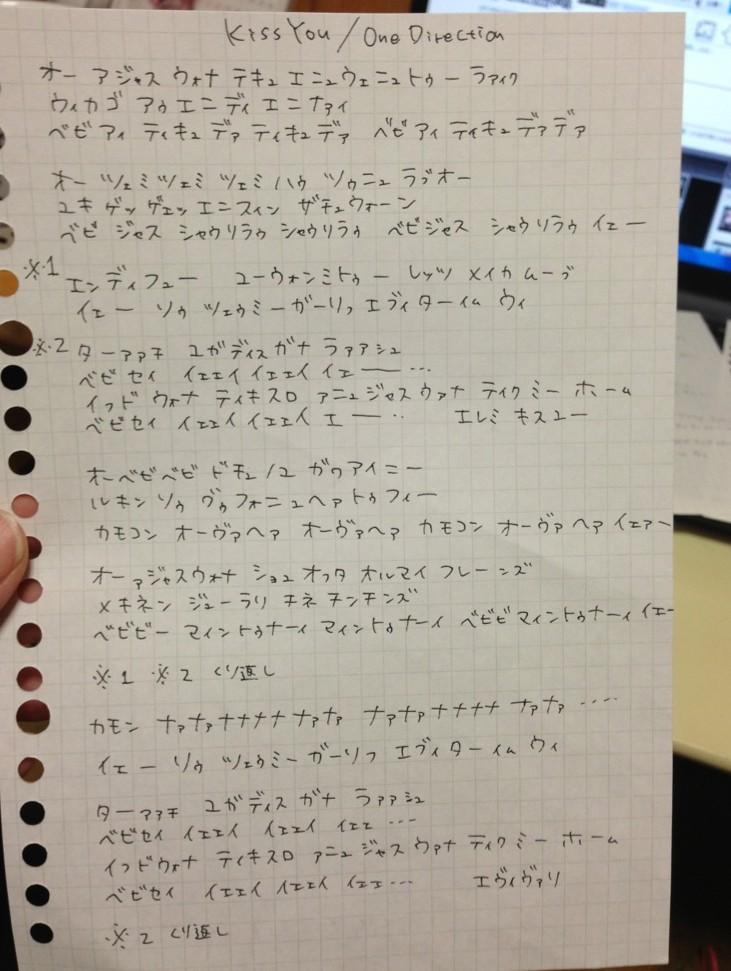 Kiss You / One Direction
オー アジャス ウォナ テキュ エニュウェニュトゥー ラァイク
ウィカゴ アウ エニ ディ エニナァィ
ベビ アィ ティキュ デァ ティキュ デァ ベビ アィ ティキュ デァデァ
オー ツェミ ツェミ ツェミ ハウ ツゥニュ ラブオー
ユキ ゲッ ゲェッ エニスィン ザチュウォーン
ベビ ジャス シャウリラウ シャウリラウ ベビジャス シャウリラウ イェー
※1 エンディフュー ユーウォンミトゥー レッツ メイカ ムーブ
イェー ソゥ ツェゥミーガーリッ エブィタームィ ウィ
※2 ターァァチ ユガディスガナ ラァァシュ
ベビ セイ イェエイ イェエイ イェー …
イッドウォナ ティキスロ アニュジャスウァナ ティクミー ホーム
ベビセイ イェエイ イェエイ エー ‥ エレミ キスユー
オーベビベビ ドチュノユ ガワアイニー
ルキン ソゥ グゥフォニュヘァトゥフィー
カモコン オーヴァヘァ オーヴァヘァ カモコン オーヴァ ヘァ イェアー
オーァジャスウォナ ショユ オッタ オルマイ フレーンズ
メキネン ジューラリ チネ チンチンズ
ベビビー マィントゥナーィ マィントゥナーィ ベビビマィントゥナーィ イェー
※1 ※2 くり返し
カモン ナァナァナナナナ ナァナァ ナァナァナナナナ ナァナァ ‥‥
イェー ソゥ ツェゥミー ガーリッ エブィターィム ウィ
ターァァチ ユガディス ガナ ラァァシュ
ベビセイ イェエイ イェエイ イェエ …
イッドウォナ ティキスロ アニュ ジャス ウァナ ティクミー ホーム
ベビセイ イェエイ イェエイ イェエ … エヴィヴァリ
※2 くり返し